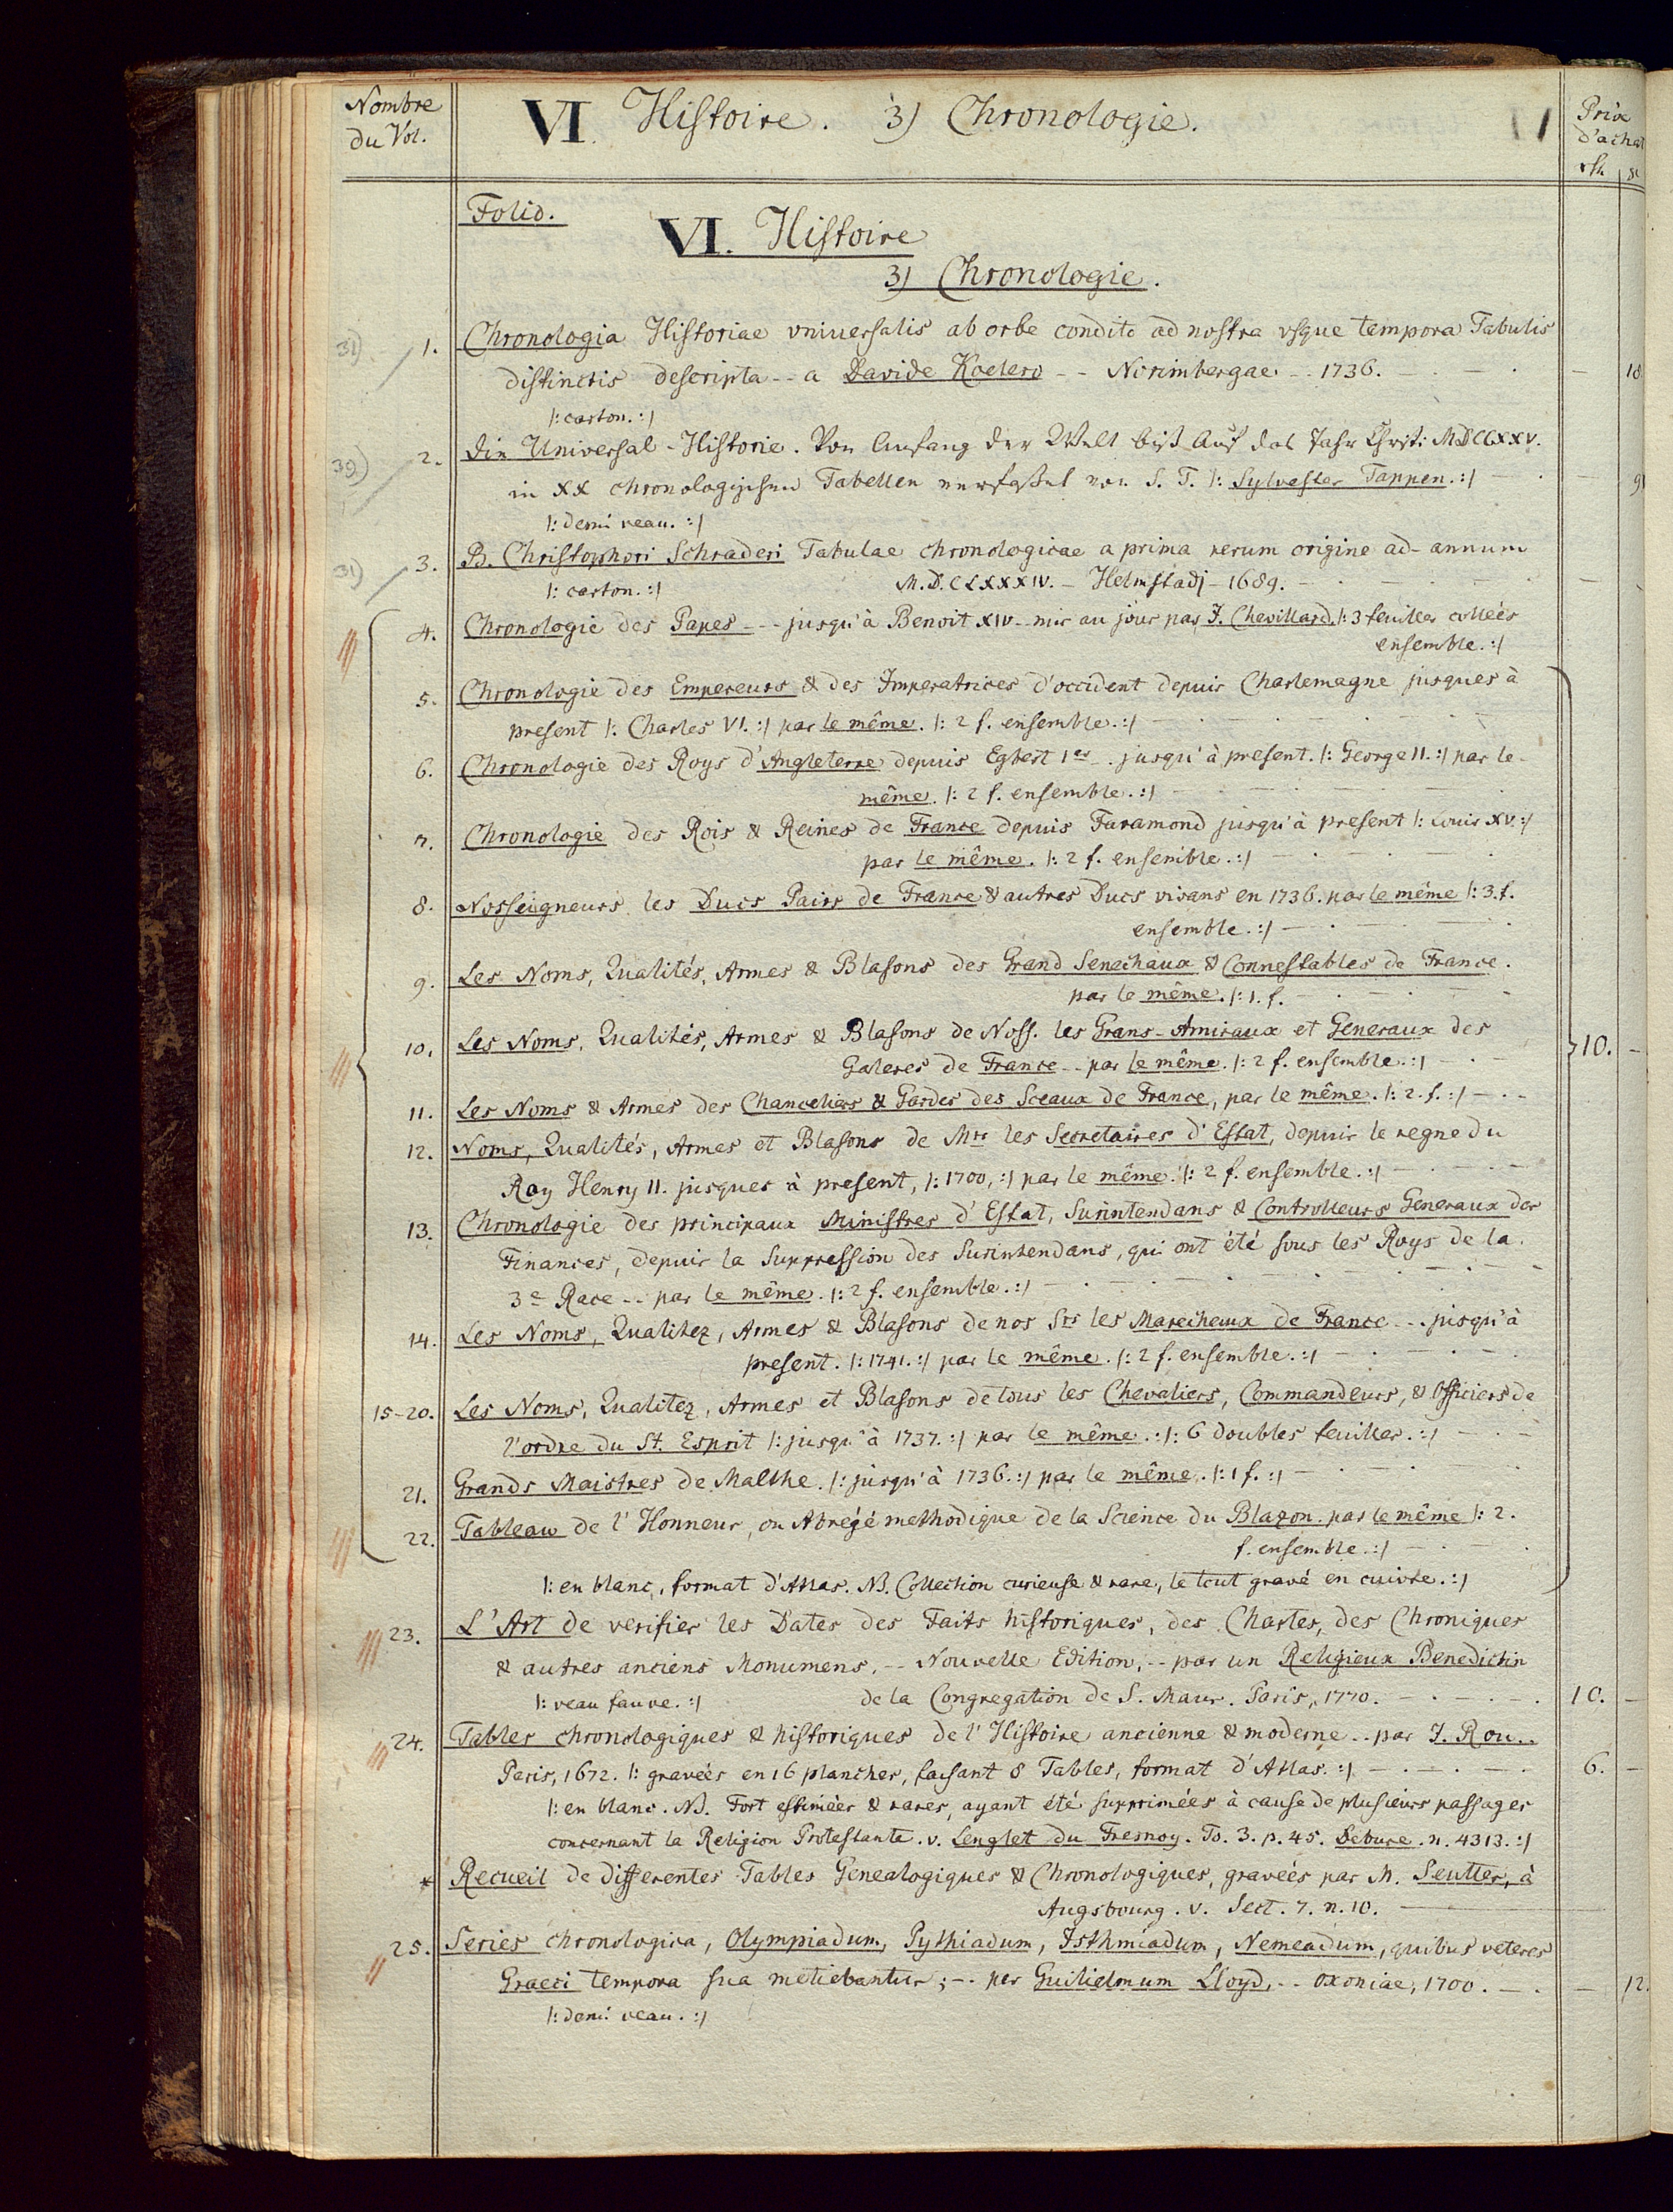 Nombre
du Vol.
VI. Histoire. 3) Chronologie.
Prix
d'achat
rth. gr
Folio.
VI. Histoire
3) Chronologie.
31)
1. Chronologia Historiae vniuersalis ab orbe condito ad nostra vsque tempora Tabulis
distinctis descripta -- a Davide Koelero -- Norimbergae -- 1736. — 18
|: carton. :|
39)
2. Die Universal-Historie. Von Anfang der Welt biß auf das Jahr Christi MDCCXXV.
in XX chronologischen Tabellen verfaßet von S. T. |: Sylvester Tappen. :| — 9
|: demi veau. :|
31)
3. B. Christophori Schraderi Tabulae chronologicae a prima rerum origine ad annum
|: carton. :| M.D.CLXXXIV. - Helmstadj - 1689. —
4. Chronologie des Papes --- jusqu'à Benoit XIV - mis au jour par J. Chevillard. |: 3 feuilles collées
ensemble. :|
5. Chronologie des Empereurs & des Imperatrices d'occident depuis Charlemagne jusques à
present |: Charles VI. :| par le même. |: 2 f. ensemble. :|
6. Chronologie des Roys d'Angleterre depuis Egbert 1er -. jusqu'à présent. |: George II. :| par le
même. |: 2 f. ensemble. :|
7. Chronologie des Rois & Reines de France depuis Faramond jusqu'à present |: Louis XV. :|
par le même. |: 2 f. ensemble. :|
8. Nosseigneurs les Ducs Pairs de France & autres Ducs vivans en 1736. par le même |: 3. f.
ensemble. :|
9. Les Noms, Qualités, Armes & Blasons des Grand Senechaux & Connestables de France.
par le même. |: 1. f.
10. Les Noms, Qualités, Armes & Blasons de Noss. les Grans-Amiraux et Generaux des
Galeres de France -- par le même. |: 2 f. ensemble. :| 10. —
11. Les Noms & Armes des Chanceliers & Gardes des Sceaux de France, par le même. |: 2. f. :|
12. Noms, Qualités, Armes et Blasons de Mrs les Secretaires d'Estat, depuis le regne du
Roy Henry II. jusques à present, |: 1700, :| par le même. |: 2 f. ensemble. :|
13. Chronologie des principaux Ministres d'Estat, Surintendans & Controlleurs Generaux des
Finances, depuis la Suppression des Surintendans, qui ont été sous les Roys de la
3e Race -- par le même. |: 2 f. ensemble. :|
14. Les Noms, Qualitez, Armes & Blasons de nos Srs les Marechaux de France --. jusqu'à
present. |: 1741. :| par le même. |: 2 f. ensemble. :|
15-20. Les Noms, Qualitez, Armes et Blasons de tous les Chevaliers, Commandeurs, & Officiers de
l'ordre du St. Esprit |: jusqu'à 1737. :| par le même. :|: 6 doubles feuilles. :|
21. Grands Maistres de Malthe. |: jusqu'à 1736. :| par le même. |: 1 f. :|
22. Tableau de l'Honneur, ou Abrégé methodique de la Science du Blazon. par le même |: 2.
f. ensemble. :|
|: en blanc, format d'Atlas. NB. Collection curieuse & rare, le tout gravé en cuivre. :|
23. L'Art de verifier les Dates des Faits historiques, des Chartes, des Chroniques
& autres anciens Monumens. -- Nouvelle Edition, -- par un Religieux Benedictin
|: veau fauve. :| de la Congregation de S. Maur. Paris, 1770. 10. —
24. Tables chronologiques & historiques de l'Histoire ancienne & moderne -- par J. Rou..
Paris, 1672. |: gravées en 16 planches, faisant 8 Tables, format d'Atlas. :| 6. —
|: en blanc. NB. Fort estimées & rares, ayant été supprimées à cause de plusieurs passages
concernant la Religion Protestante. v. Lenglet du Fresnoy. To. 3. p. 45. Debure. n. 4313. :|
* Recueil de differentes Tables Genealogiques & Chronologiques, gravées par M. Seutter, à
Augsbourg. v. Sect. 7. n. 10.
25. Series chronologica, Olympiadum, Pythiadum, Isthmiadum, Nemeadum, quibus veteres
Graeci tempora sua metiebantur; -- per Guilielmum Lloyd, -- Oxoniae, 1700. — 12.
|: demi veau. :|